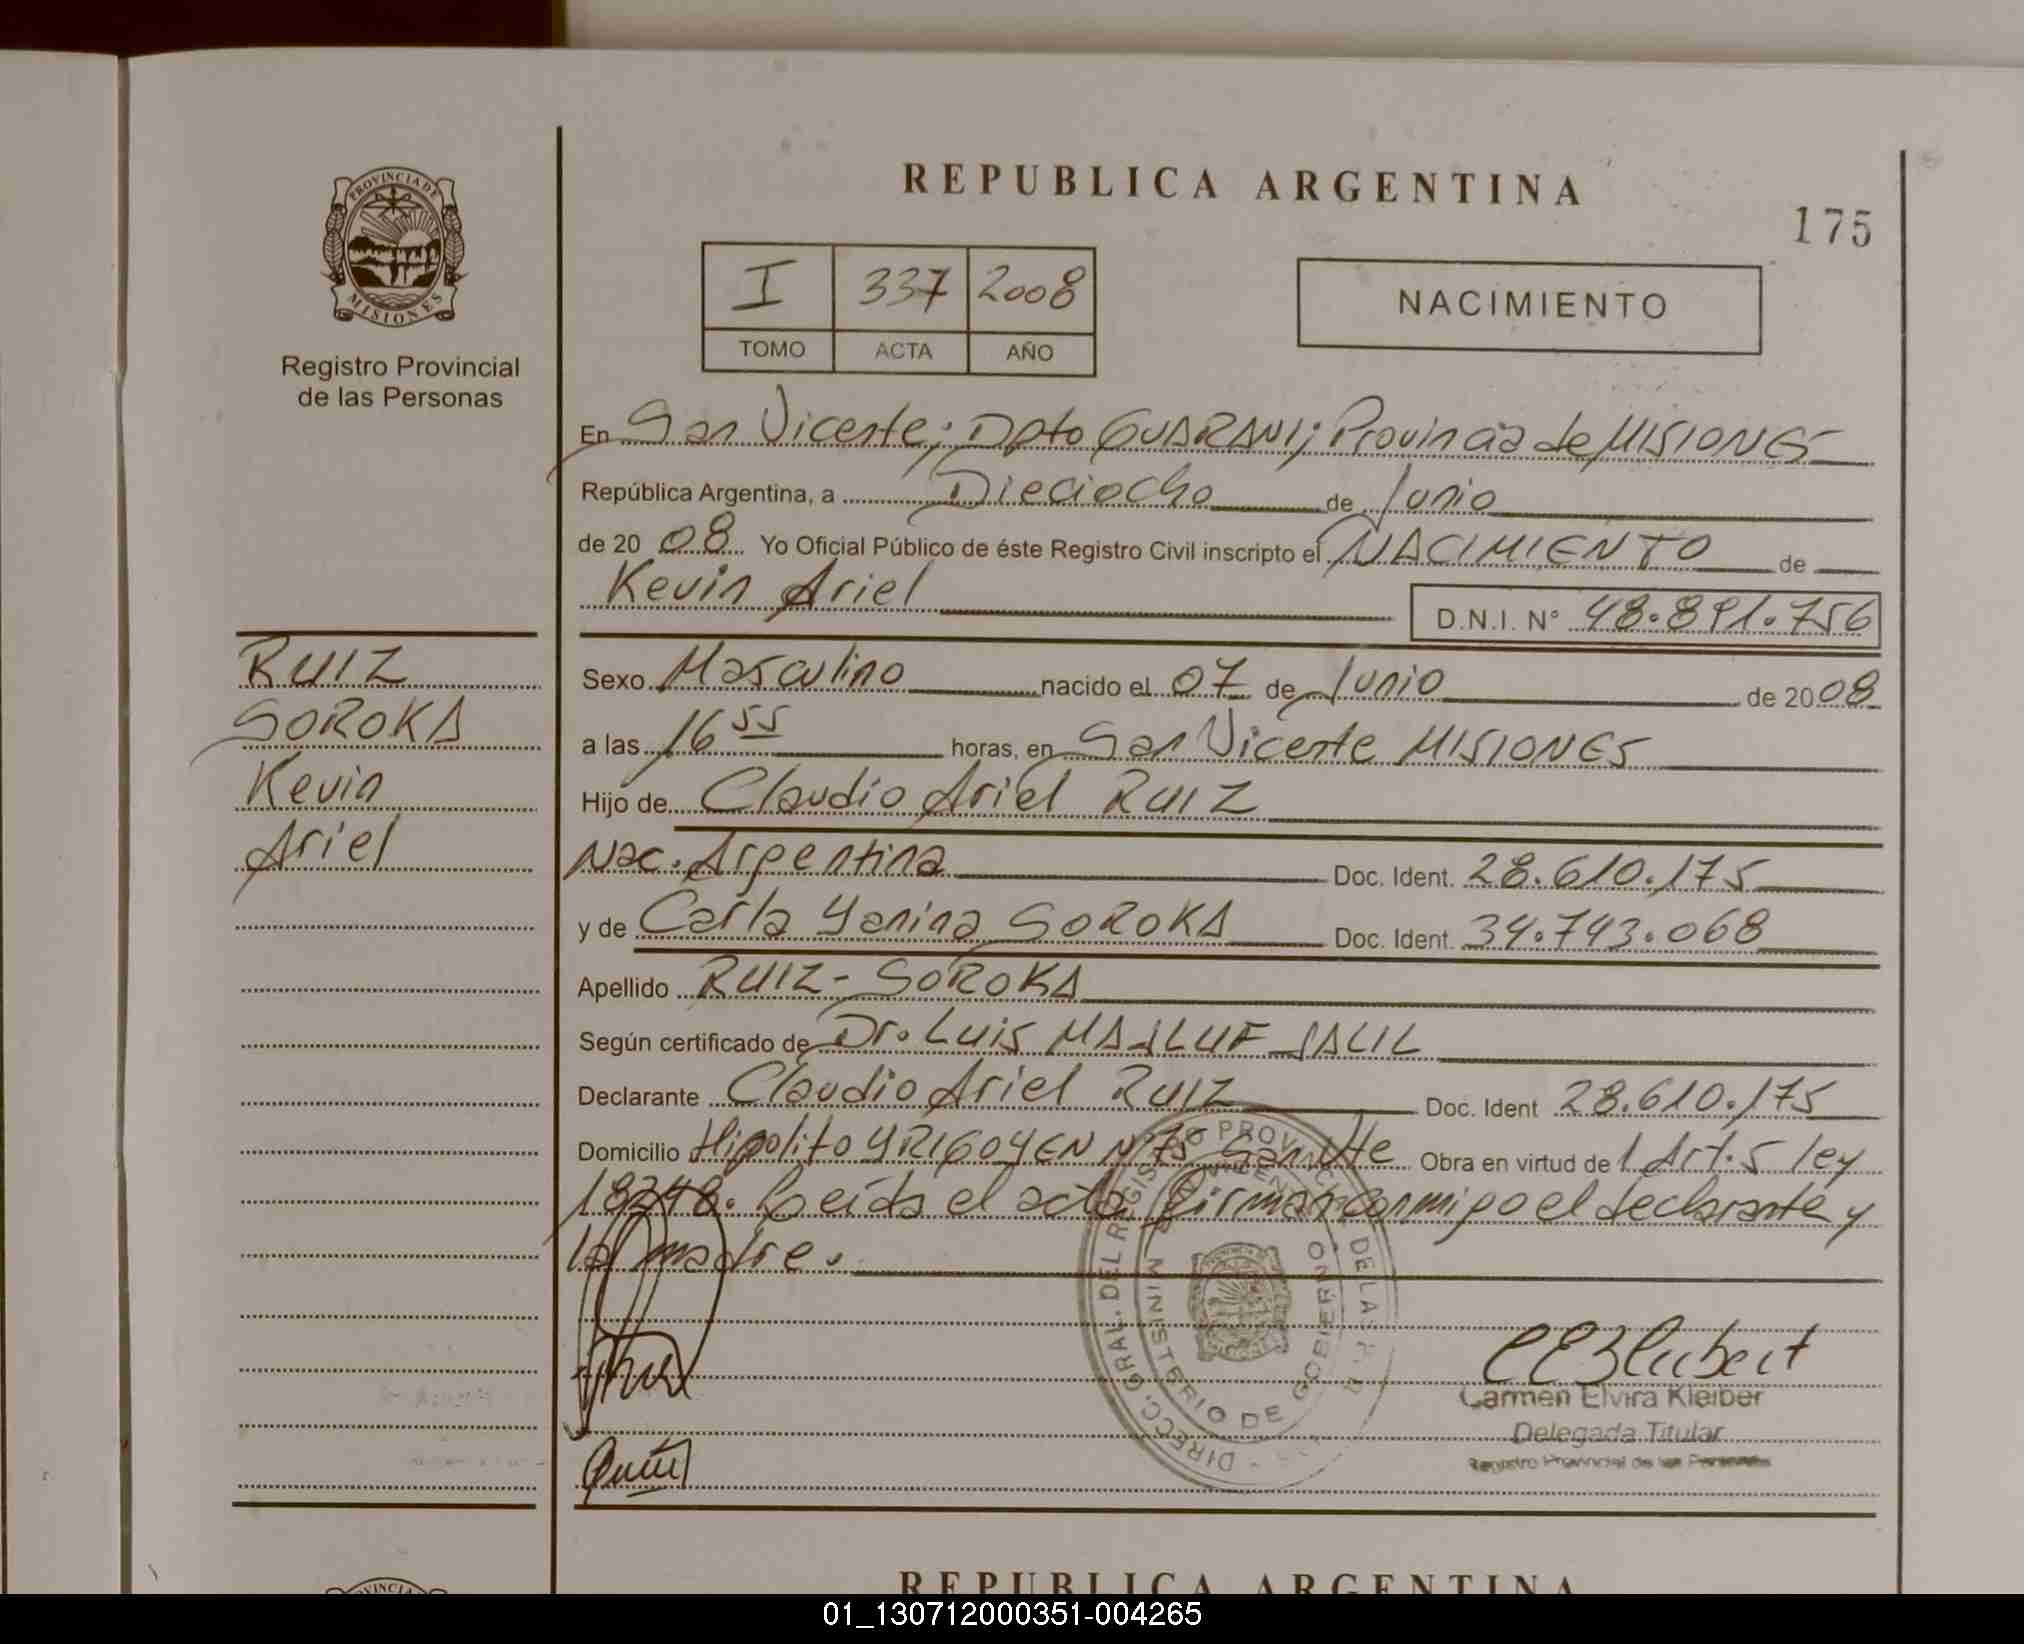 REPUBLICA ARGENTINA
175
PROVINCIA DE
MISIONES
Registro Provincial
de las Personas
I 337 2008
TOMO ACTA AÑO
NACIMIENTO
En San Vicente; Dpto GUARANI; Provincia de MISIONES
República Argentina, a Dieciocho de Junio
de 20 08 Yo Oficial Público de éste Registro Civil inscripto el NACIMIENTO de
Kevin Ariel
D.N.I. N° 48.891.756
RUIZ
SOROKA
Kevin
Ariel
Sexo Masculino nacido el 07 de Junio de 20 08
a las 16 55 horas, en San Vicente MISIONES
Hijo de Claudio Ariel RUIZ
Nac. Argentina Doc. Ident. 28.610.175
y de Carla Yanina SOROKA Doc. Ident. 34.743.068
Apellido RUIZ - SOROKA
Según certificado de Dr. Luis MAJLUF JALIL
Declarante Claudio Ariel RUIZ Doc. Ident 28.610.175
Domicilio Hipolito YRIGOYEN N° 75 San Vte Obra en virtud de l Art. 5 ley
18248. Leída el acta firman conmigo el declarante y
la madre.
DIRECC. GRAL. DEL REGISTRO PROVINCIAL DE LAS
MINISTERIO DE GOBIERNO
Carmen Elvira Kleiber
Delegada Titular
Registro Provincial de las Personas
REPUBLICA ARGENTINA
01_130712000351-004265